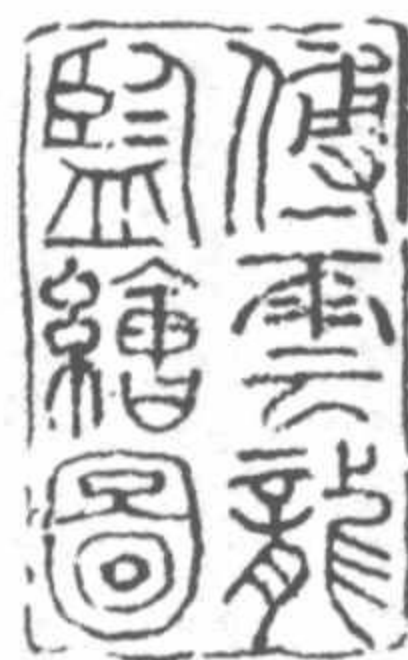 傅雲龍
監繪圖